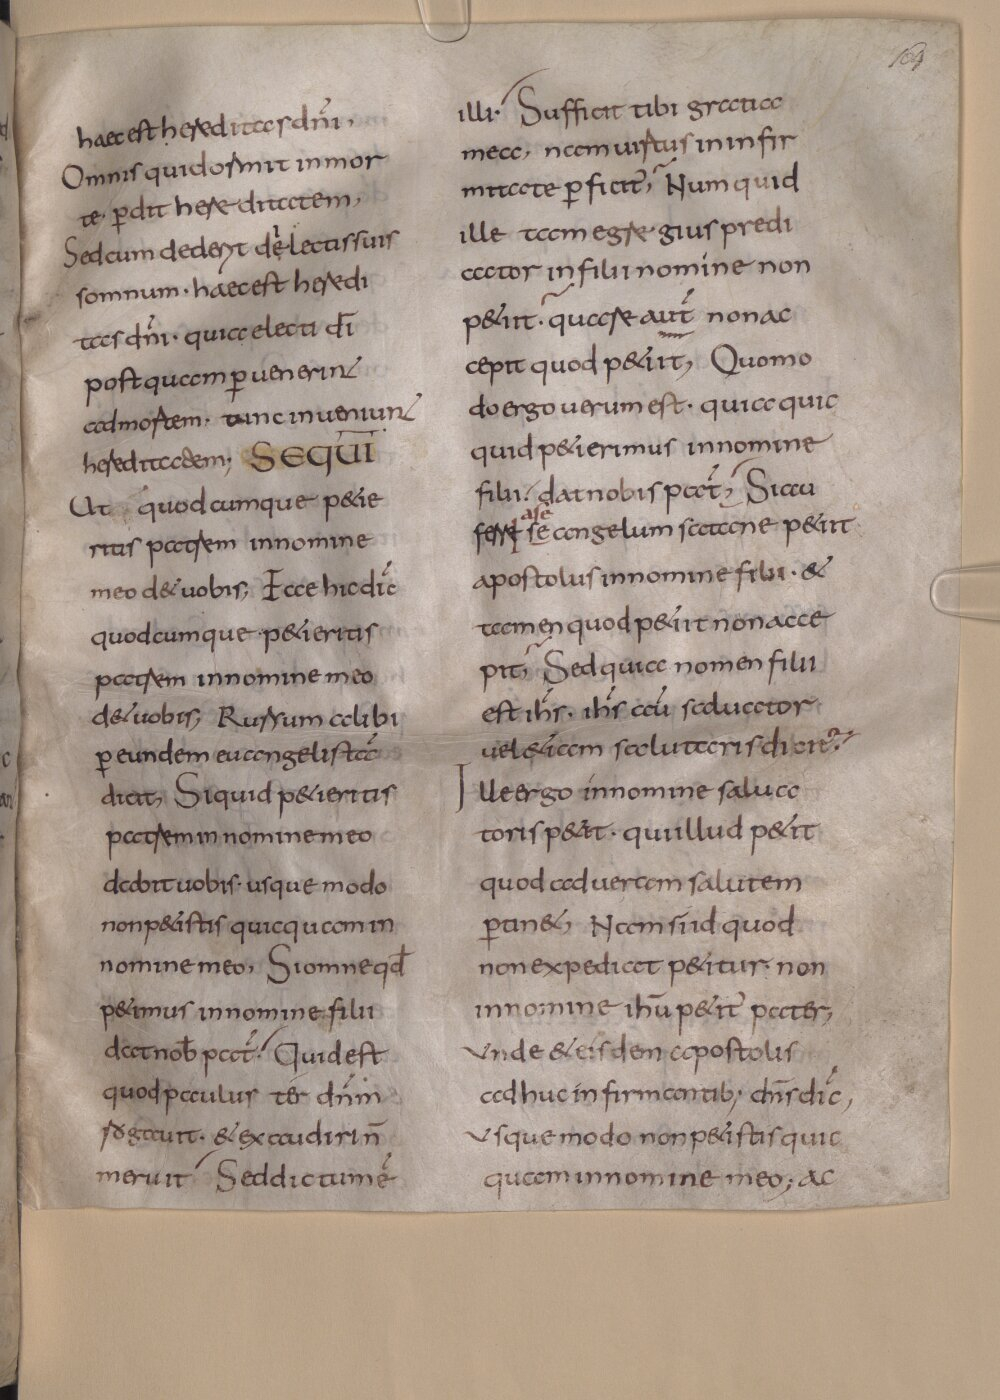 169
haec est hereditas dn̄i,
Omnis qui dormit in mor
te· p̱dit hereditatem,
Sed cum dederit dilectis suis
somnum· haec est heredi
tas dn̄i· quia electi dī
postquam p̱uenerint
ad mortem· tunc inueniunt
hereditatem; SEQUI
Ut quodcumque petie
ritis patrem in nomine
meo det uobis; Ecce hic dic̄
quodcumque petieritis
patrem in nomine meo
det uobis; Rursum alibi
p̱ eundem euangelistā
dicit; Siquid petieritis
patrem in nomine meo
dabit uobis· usque modo
non petistis quicquam in
nomine meo; Si omne qd̄
petimus in nomine filii
dat nob̄ pat̄· Quid est
quod paulus ter dn̄m
rogauit· & exaudiri n̄
meruit Sed dictum ē
illi· Sufficit tibi gratia
mea, nam uirtus in infir
mitate p̱ficit̄; Numquid
ille tam egregius predi
cator in filii nomine non
petiit· quare aut̄ non ac
cepit quod petiit; Quomo
do ergo uerum est· quia quic
quid petierimus in nomine
filii· dat nobis pat̄; Si au
ferre se angelum satane petiit
apostolus in nomine filii· &
tamen quod petiit non acce
pit; Sed quia nomen filii
est ih̄s· ih̄s au saluator
uel etiam salutaris dicit̄·
Ille ergo in nomine salua
toris petit· qui illud petit
quod ad ueram salutem
p̱tinet; Nam si id quod
non expediat petitur· non
in nomine ih̄u petit̄ pater;
Vnde & eisdem apostolis
adhuc infirmantib; dn̄s dic̄,
Vsque modo non petistis quic
quam in nomine meo; ac